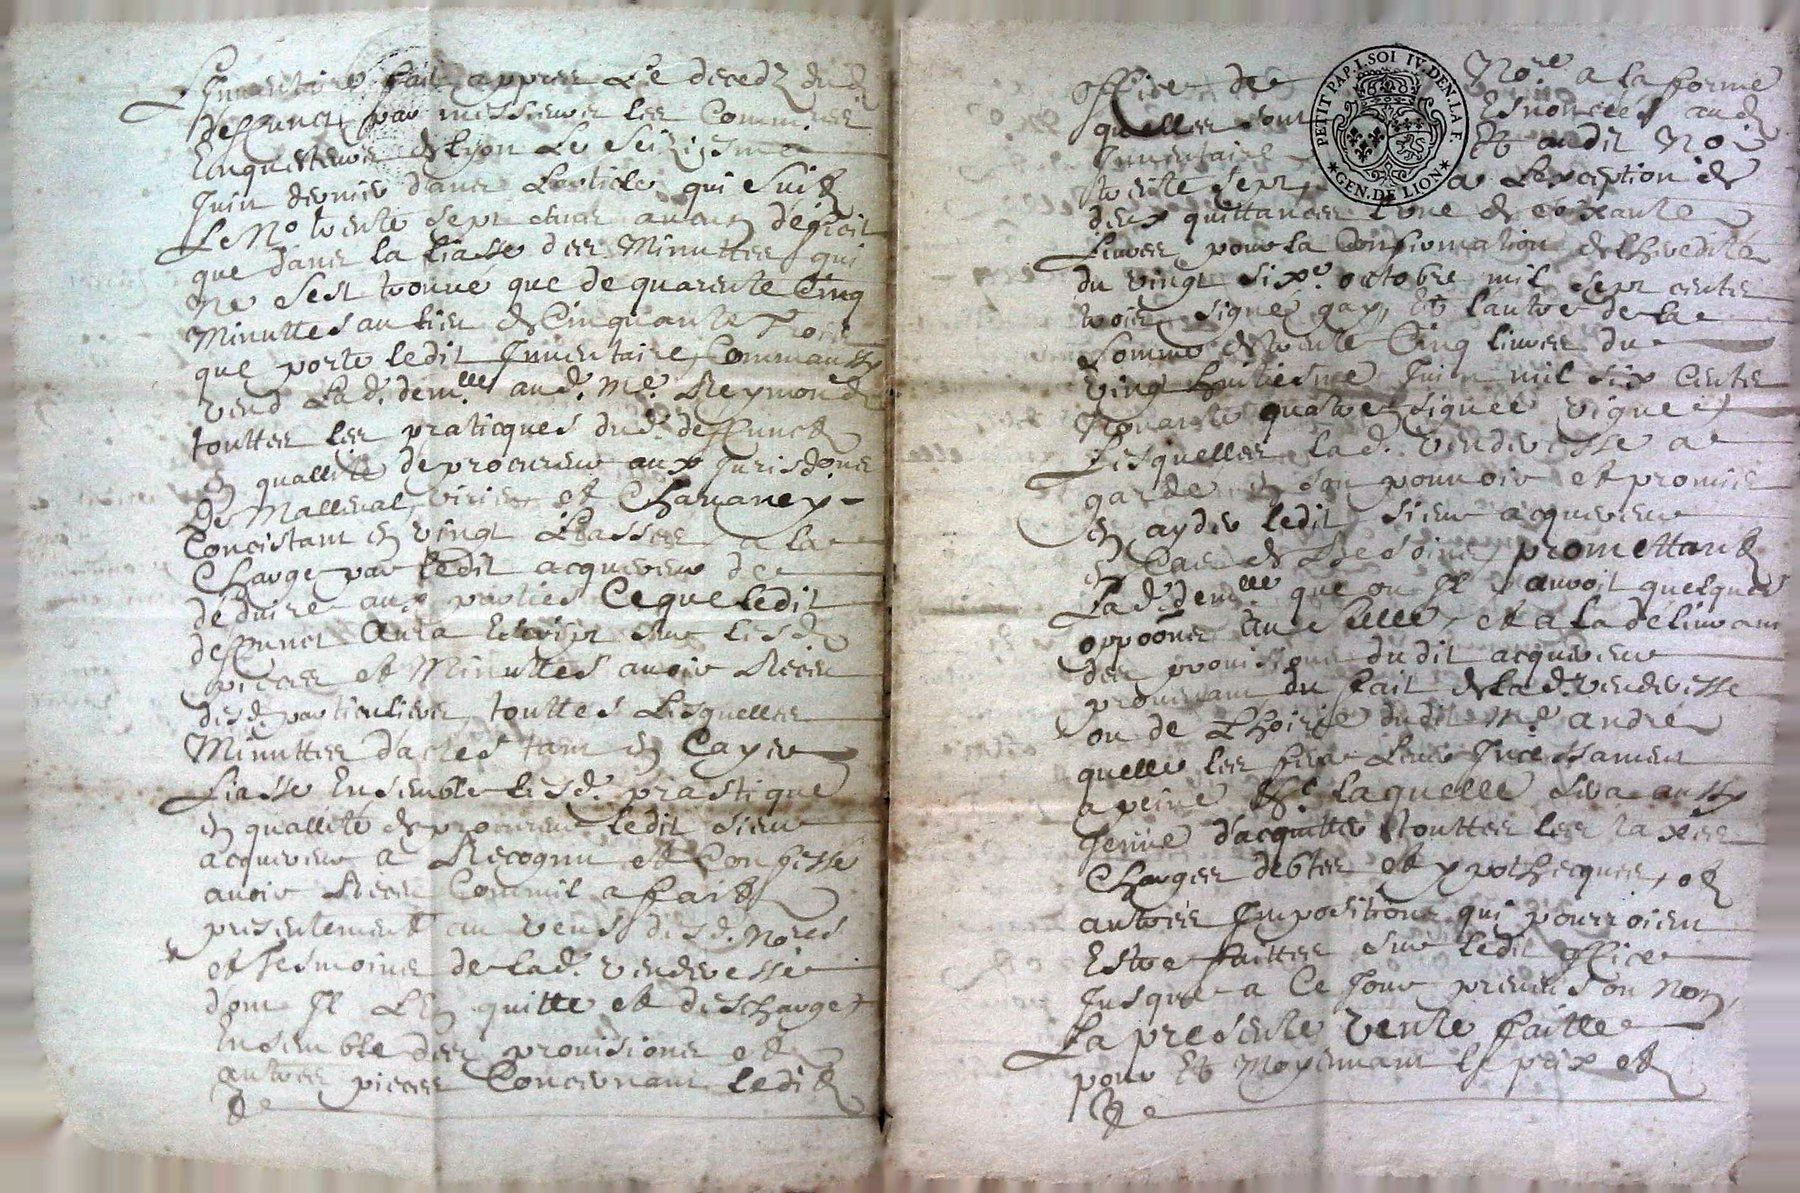 Jnventaire fait appres Le decedz dud.
deffunct par messieurs les Commres
Enquetteurs de Lyon Le Seiziesme
Juin dernier dans Larticle qui Suit
Le No trente Sept
que dans la liasse des Minuttes qui
ne sest trouué que de quarente Cinq
Minuttes au lieu de Cinquante Trois
que porte ledit Jnuentaire, Comm'aussy
vend Lad. demlle aud. Me Reymond
touttes les praticques dud. deffunct
En quallité de procureur aux Jurisdons
de Malleual, Virieu et Chauaney
Concistant En vingt Liasses a la
Charge par ledit acquereur de
déduire aux parties Ceque ledit
deffunct Aura Escript sur lesd.
pieces et Minuttes auoir Receu
desd. particuliers, touttes Lesquelles
Minuttes d'actes tant En Cayer
Liasse Ensemble lesd. prastique
En quallité de procureur ledit sieur
acquereur a Recognu et Confessé
auoir Receu Comm'il a fait
presentement au veus desd. Nores
et Tesmoins de lad. venderesse
dont Jl L'En quitte et descharge
Ensemble des prouisions et
autres pieces Concernant ledit
De
PETIT PAP. I. SOI IV. DEN. LA F. GEN. DE LION
office de Nore a la forme
quelles sont Esnoncées aud.
Jnuentaire Et audit No
trente sept, a Lexception de
deux quittances Lune de soixante
Liures pour la Confirmation de lheredité
du vingt sixe octobre mil sept cents
trois signé gay, Et lautre de la
somme de trente Cinq liures du
Vingt huitiesme Juin mil six Cents
Nonante quatre signée vignet
Lesquelles lad. venderesse a
gardé En son pouuoir et promis
En ayder ledit sieur acquereur
En Cas de Besoing, promettant
Lad. demlle que ou Jl y auroit quelques
oppoons au Seau, et a la déliurance
des prouisions dudit acquereur
prouenant du fait de lad. venderesse
ou de Lhoirie dudit Me andré
quelle les fera Leuer Jncessament
a peine &c. laquelle sera aussy
Tenüe d'acquitter touttes les taxes
Charges debtes et ypothecques, et
autres Jmpositions qui pourroient
Estre faittes sur ledit office
Jusque a Ce Jour
La presente vente faitte
pour Et Moyennant le prix et
De